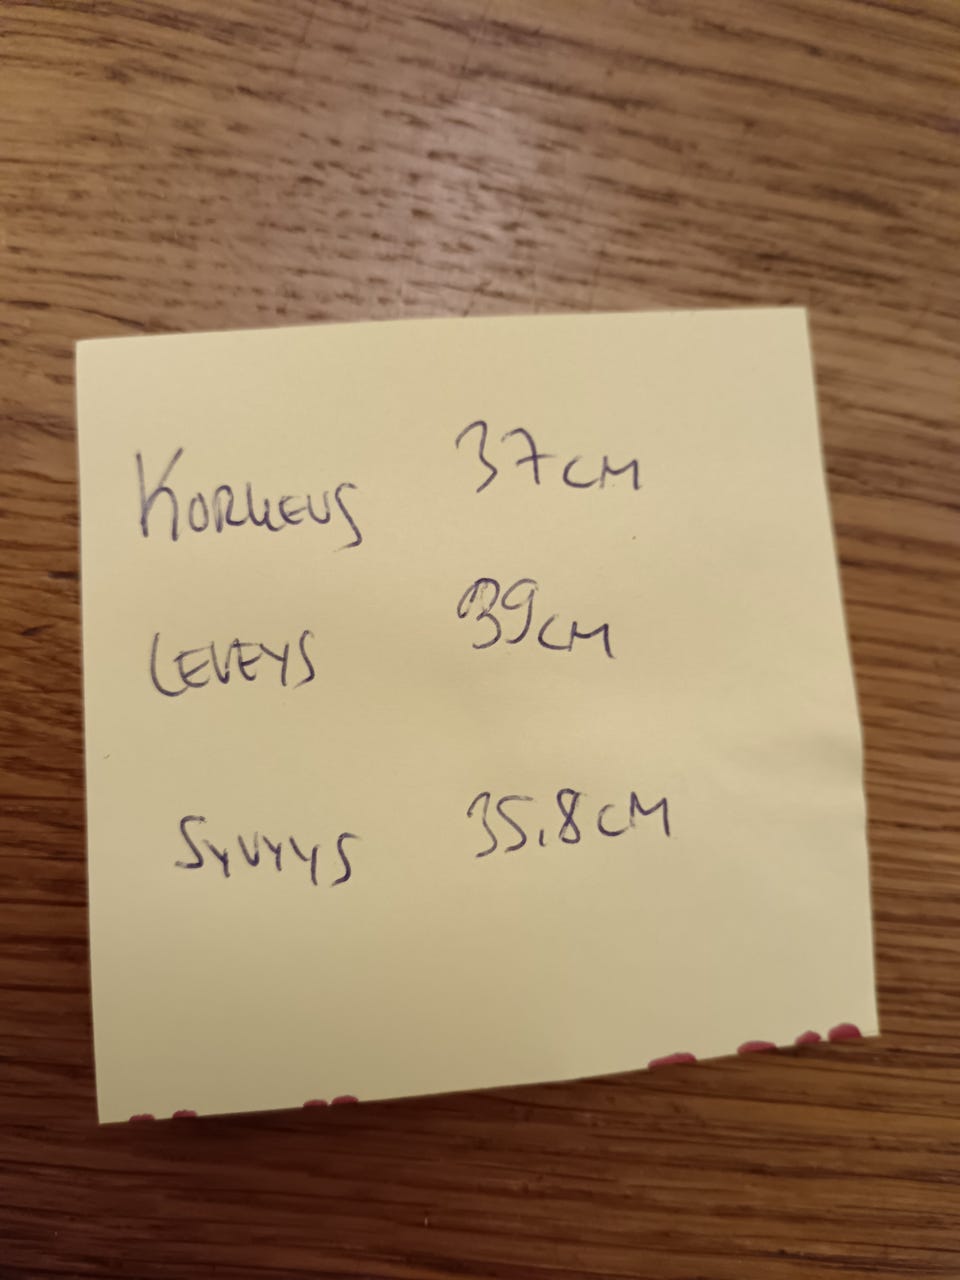 KORKEUS 37CM
LEVEYS 39CM
SYVYYS 35,8CM